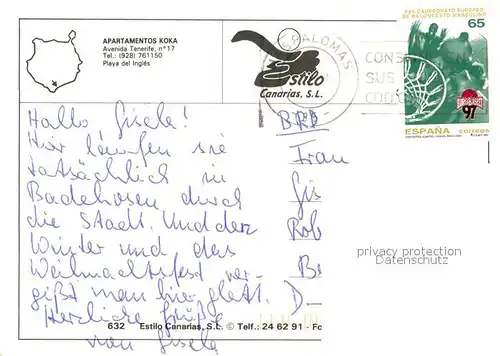 APARTAMENTOS KOKA
Avenida Tenerife, n.º 17
Tel.: (928) 761150
Playa del Inglés
Estilo
Canarias, S.L.
SPALOMAS
CONS
SUS
COD
XXX CAMPEONATO EUROPEO
DE BALONCESTO MASCULINO
65
EUROBASKET
97
ESPAÑA correos
Hallo Gisela!
Hier laufen sie
tatsächlich in
Badehosen durch
die Stadt. Und der
Winter und das
Weihnachtsfest ver-
gißt man hier glatt.
Herzliche Grüße
von Gisela
BRD
Frau
Gis
Rob
B
D-
privacy protection
Datenschutz
632 Estilo Canarias, S.L. © Telf.: 24 62 91 - Fo